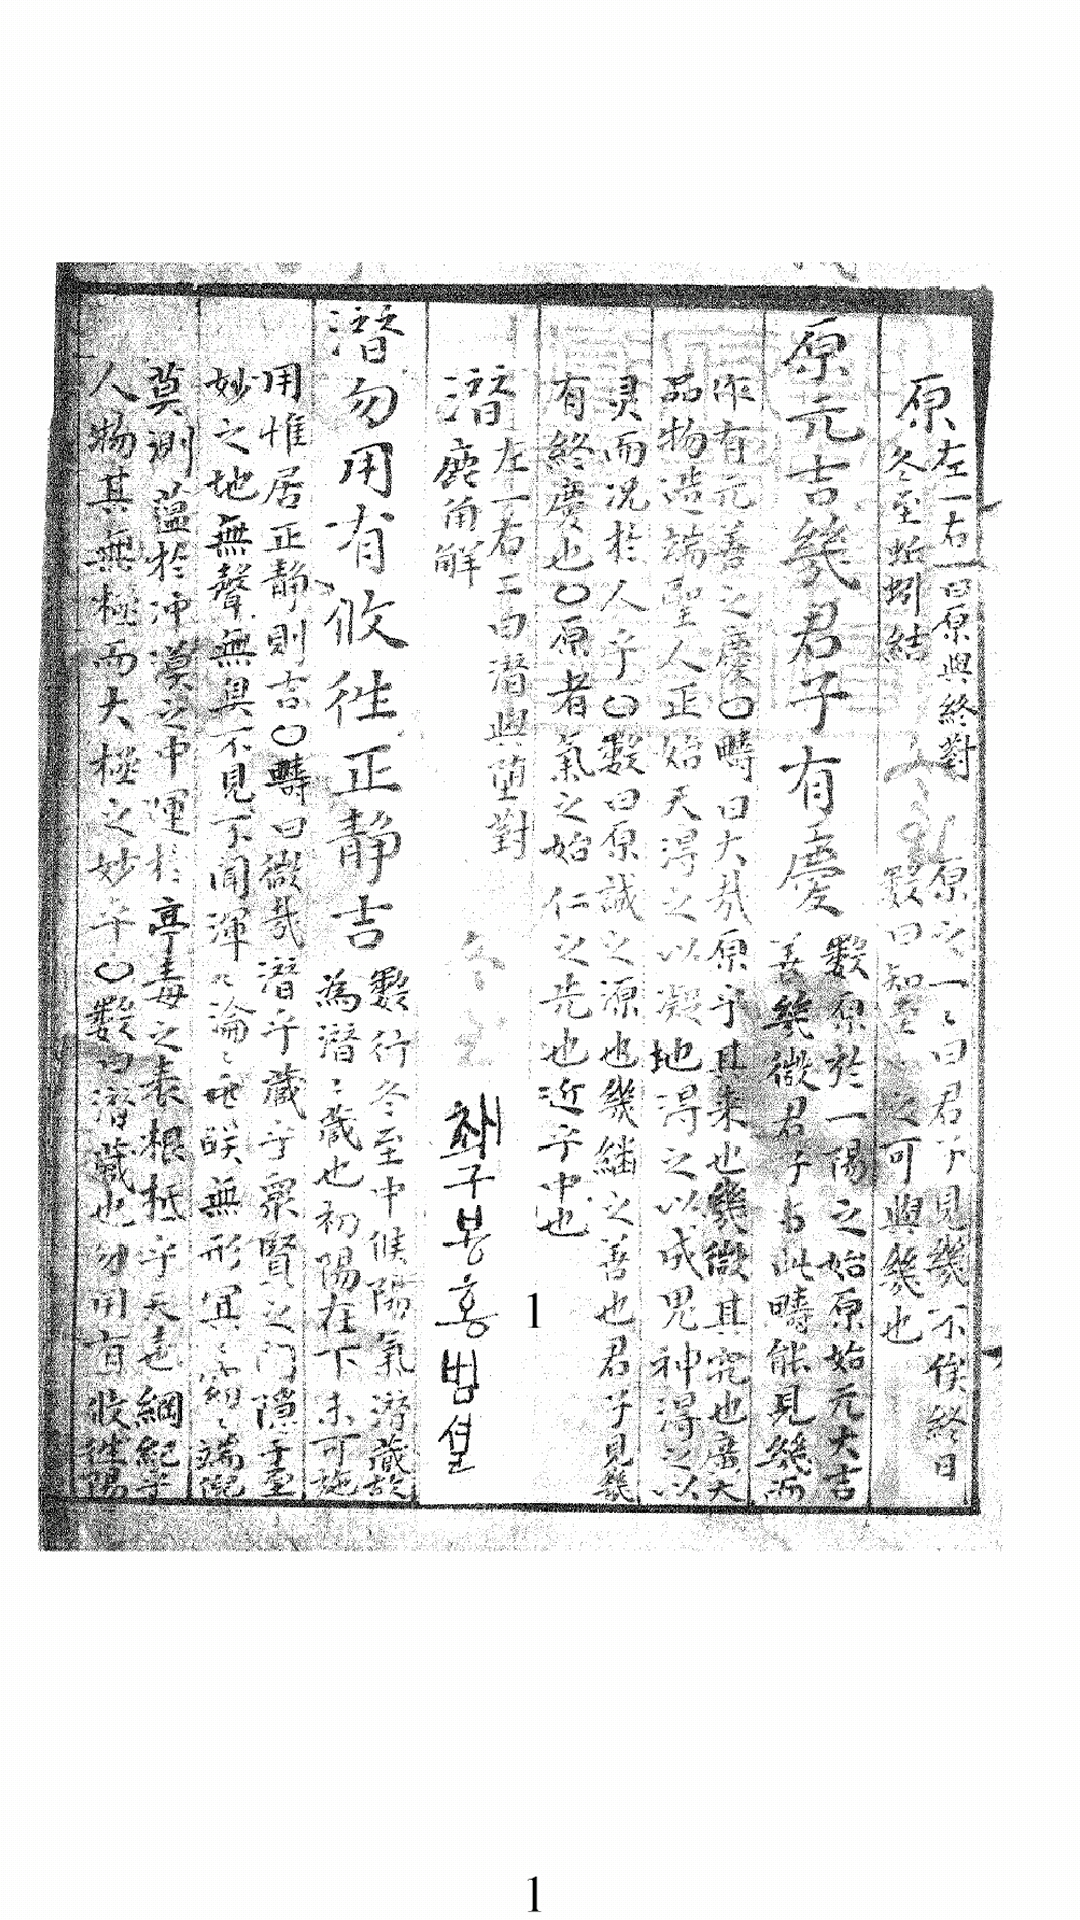 原
左一右一曰原與終對
冬至蚯蚓結
原之一一曰君子見幾不俟終日
數曰知至之可與幾也
原元吉幾君子有慶
數原於一陽之始原始元大吉
善幾微君子占此疇能見幾而
作有元善之慶〇疇曰大哉原乎其來也幾微其究也廣大
品物造端聖人正始天得之以凝地得之以成鬼神得之以
灵而况於人乎〇數曰原誠之源也幾繼之善也君子見幾
有終慶也〇原者氣之始仁之先也近乎中也
潛
左一右二曰潛與堕對
麋角解
冬至
채구봉홍범설
潛勿用有攸徃正静吉
數行冬至中候陽氣潛藏故
為潛〻藏也初陽在下未可施
用惟居正静則吉〇疇曰微哉潛乎藏乎衆賢之門隱乎至
妙之地無聲無臭不見不聞渾〻淪〻無眹無形冥〻窈〻端倪
莫測蕴於冲漠之中運於亭毒之表根柢乎天地綱紀乎
人物其無極而大極之妙乎〇數曰潛藏也勿用有攸徃陽
1
1